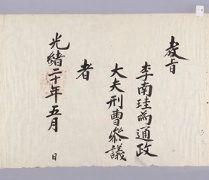 教旨
李南珪為通政
大夫刑曹參議
者
光緒二十年五月　日